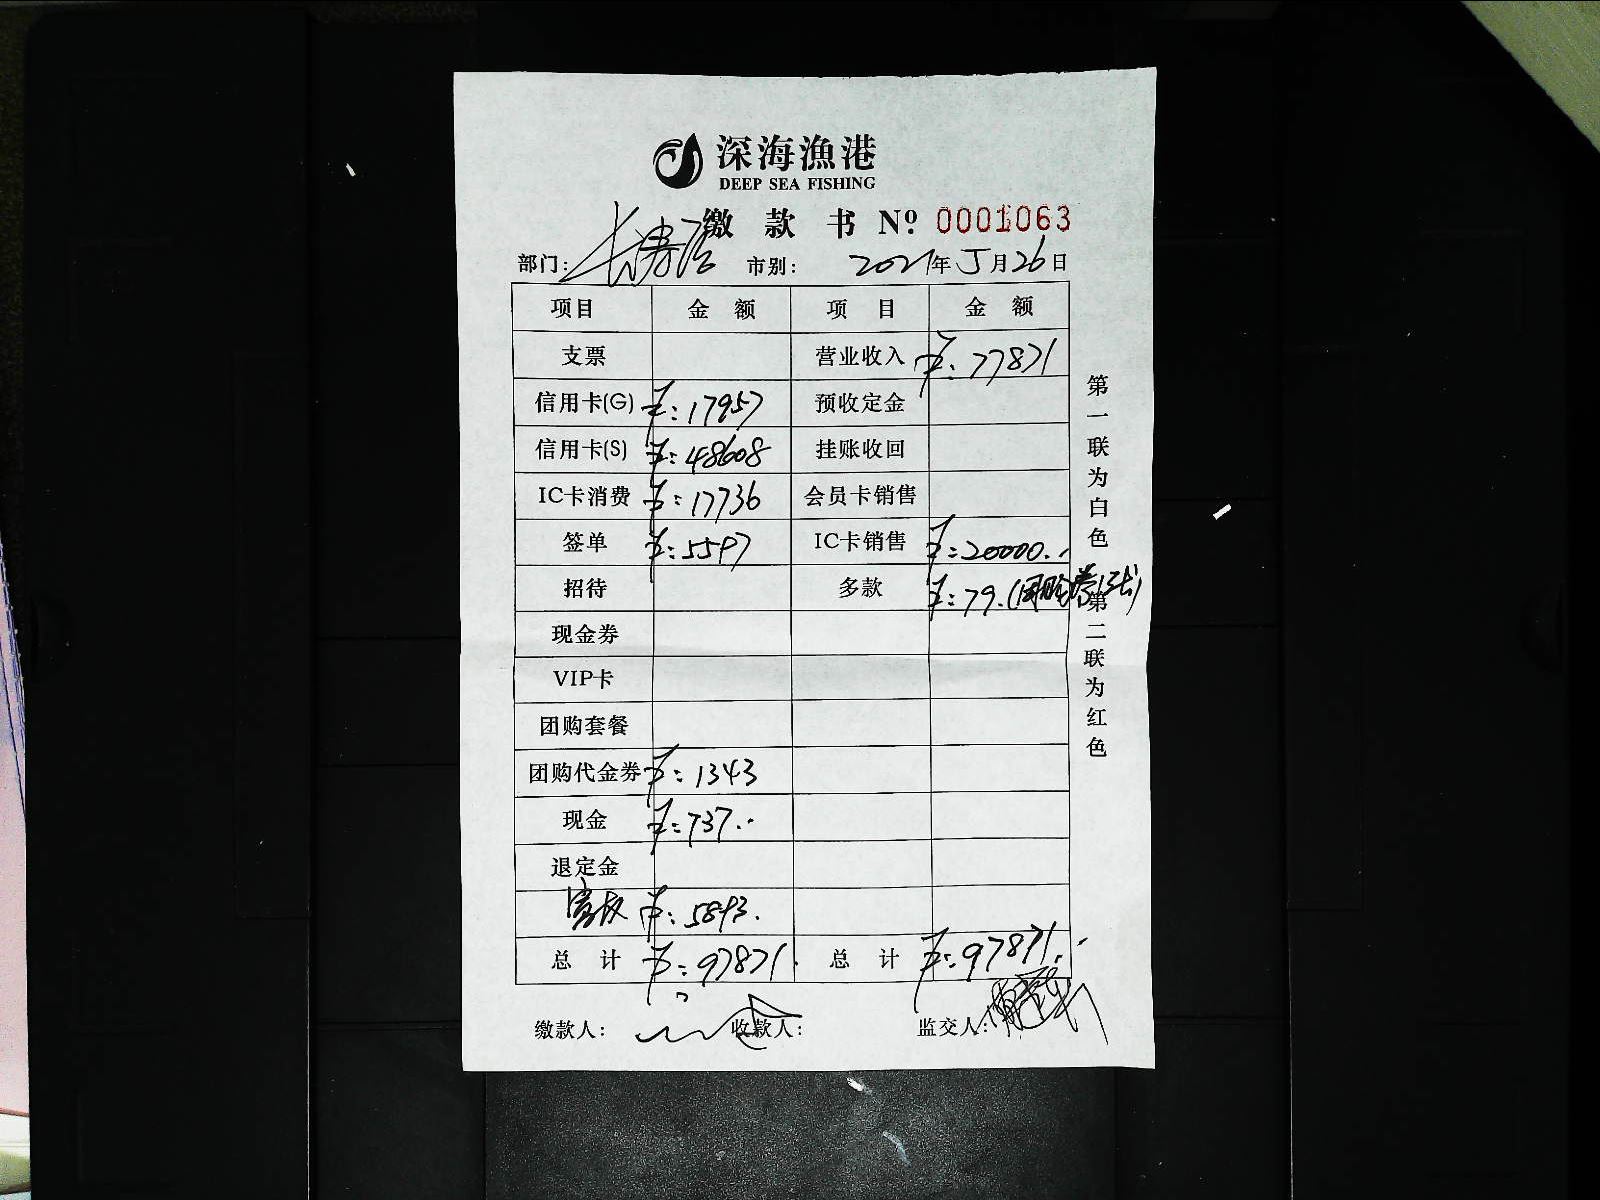 深海渔港
DEEP SEA FISHING
缴款书 Nº: 0001063
部门: 长寿 市别: 2021年5月26日
项目 金额 项目 金额
支票 营业收入 ¥: 77871
信用卡(G) ¥: 17957 预收定金
信用卡(S) ¥: 48608 挂账收回
IC卡消费 ¥: 17736 会员卡销售
签单 ¥: 5597 IC卡销售 ¥: 20000..
招待 多款 ¥: 79.(团购券13张)
现金券
VIP卡
团购套餐
团购代金券 ¥: 1343
现金 ¥: 737..
退定金
¥: 5893.
总计 ¥: 97871. 总计 ¥: 97871..
缴款人: 收款人: 监交人:
第一联为白色 第二联为红色